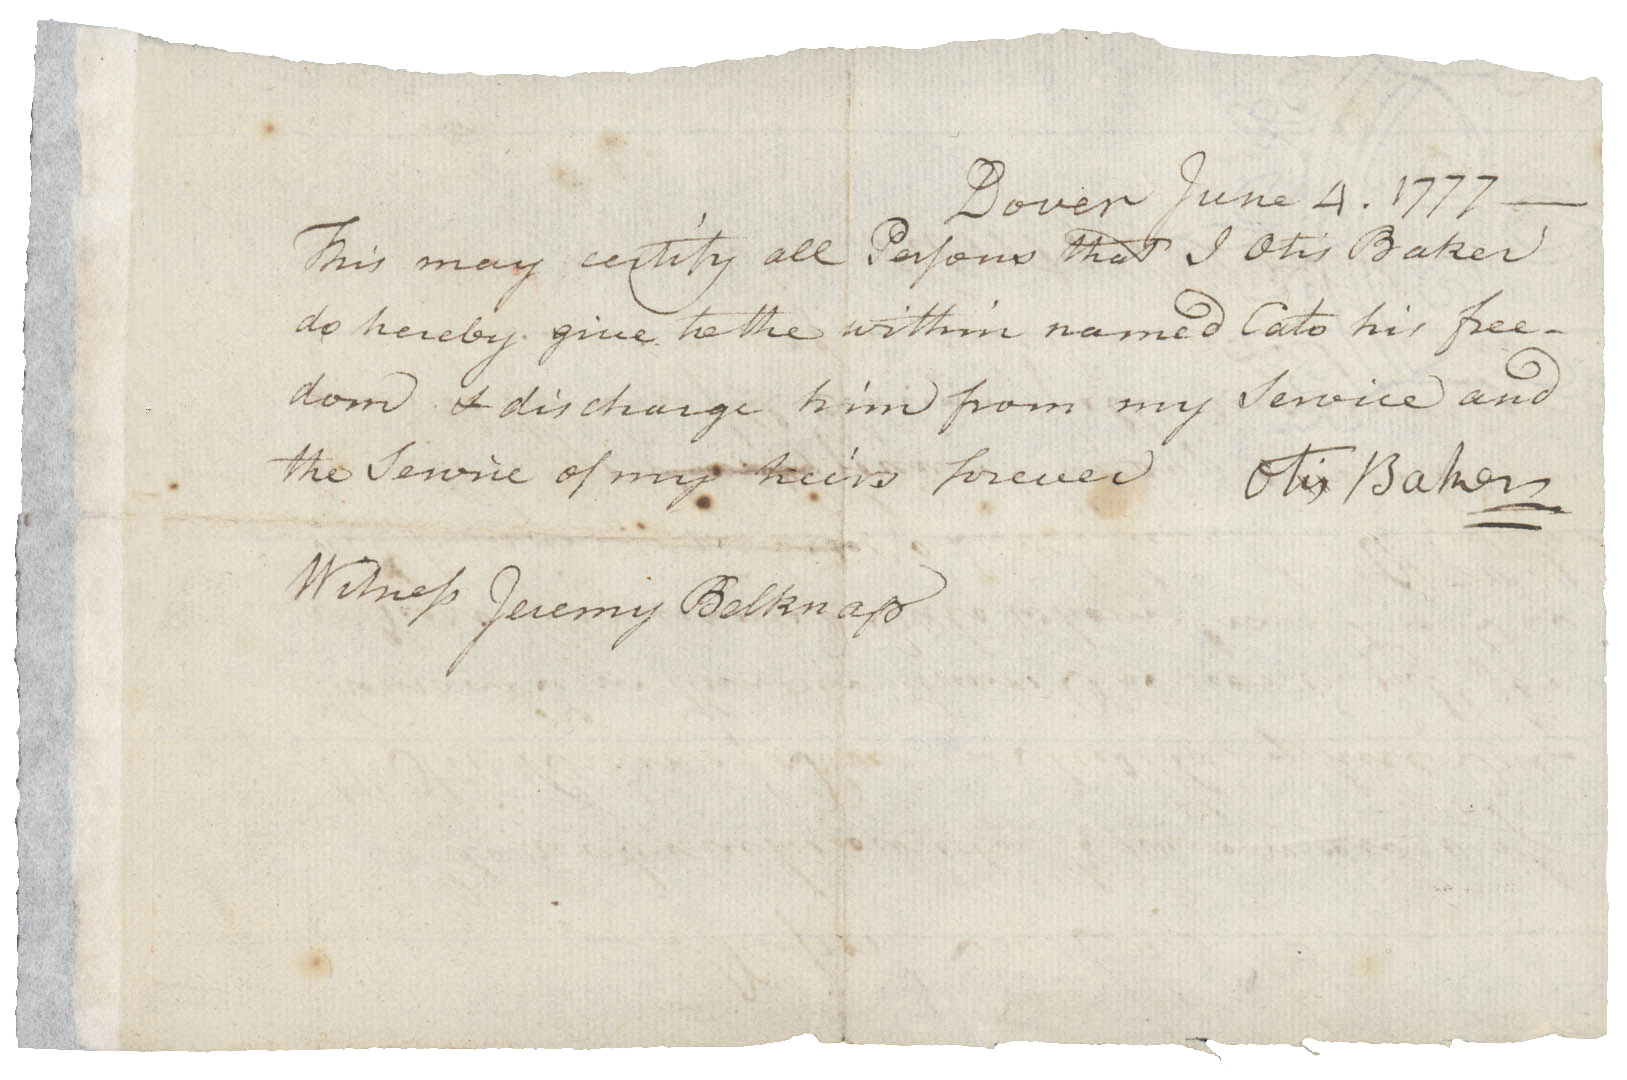 Dover June 4. 1777 —
This may certify all Persons that I Otis Baker
do hereby give to the within named Cato his free-
dom & discharge him from my Service and
the Service of my heirs forever Otis Baker
Witness Jeremy Belknap